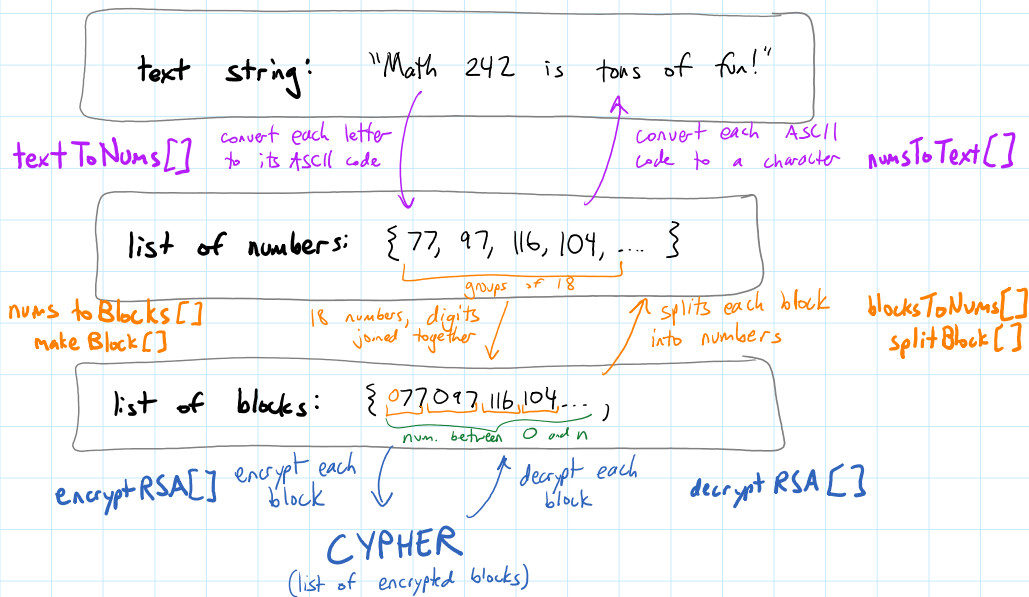 text string: "Math 242 is tons of fun!"
textToNums[]
convert each letter
to its ASCII code
convert each ASCII
code to a character
numsToText[]
list of numbers: {77, 97, 116, 104, .... }
groups of 18
nums toBlocks[]
makeBlock[]
18 numbers, digits
joined together
splits each block
into numbers
blocksToNums[]
splitBlock[]
list of blocks: {077097116104...,
num. between 0 and n
encryptRSA[]
encrypt each
block
decrypt each
block
decryptRSA[]
CYPHER
(list of encrypted blocks)